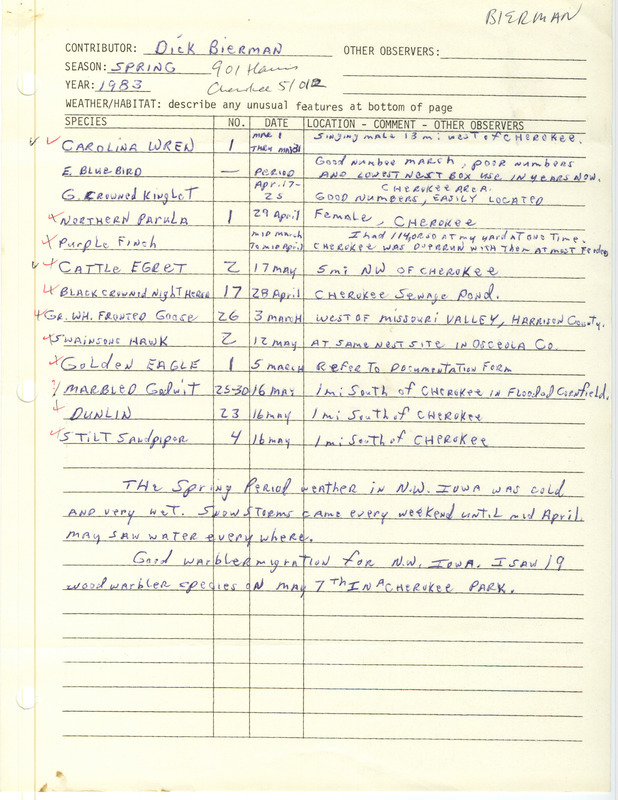 BIERMAN
CONTRIBUTOR: Dick Bierman OTHER OBSERVERS:
SEASON: SPRING 901
YEAR: 1983 Cherokee 51012
WEATHER/HABITAT: describe any unusual features at bottom of page
SPECIES NO. DATE LOCATION - COMMENT - OTHER OBSERVERS
CAROLINA WREN 1 MAR 1 Singing male 13 mi west of CHEROKEE.
E. BLUEBIRD — PERIOD Good number march, poor numbers
AND LOWEST NEST BOX USE IN YEARS NOW.
G. CROWNED KINGLET Apr. 17-25 CHEROKEE AREA.
GOOD NUMBERS, EASILY LOCATED
NORTHERN PARULA 1 29 April Female, CHEROKEE
Purple Finch mid march To mid April I had at my yard at one Time.
CHEROKEE WAS OVERRUN WITH Them AT most Feeders
CATTLE EGRET 2 17 may 5mi NW OF CHEROKEE
BLACK CROWNED Night HERON 17 28 April CHEROKEE Sewage Pond.
GR. WH. FRONTED Goose 26 3 march WEST OF MISSOURI VALLEY, HARRISON County.
SWAINSONS HAWK 2 12 may AT SAME NEST SITE IN OSCEOLA CO.
GOLDEN EAGLE 1 5 march REFER TO DOCUMENTATION FORM
MARBLED Godwit 25-30 16 may 1mi South of CHEROKEE in Flooded Cornfield.
DUNLIN 23 16 may 1mi South of CHEROKEE
STILT Sandpiper 4 16 may 1mi South of CHEROKEE
THE Spring Period weather in N.W. IOWA WAS cold
AND very WET. SNOWSTORMS came every weekend UNTIL mid April.
may saw water everywhere.
Good warbler migration for N.W. IOWA. I SAW 19
woodwarbler species ON may 7th IN A CHEROKEE PARK.